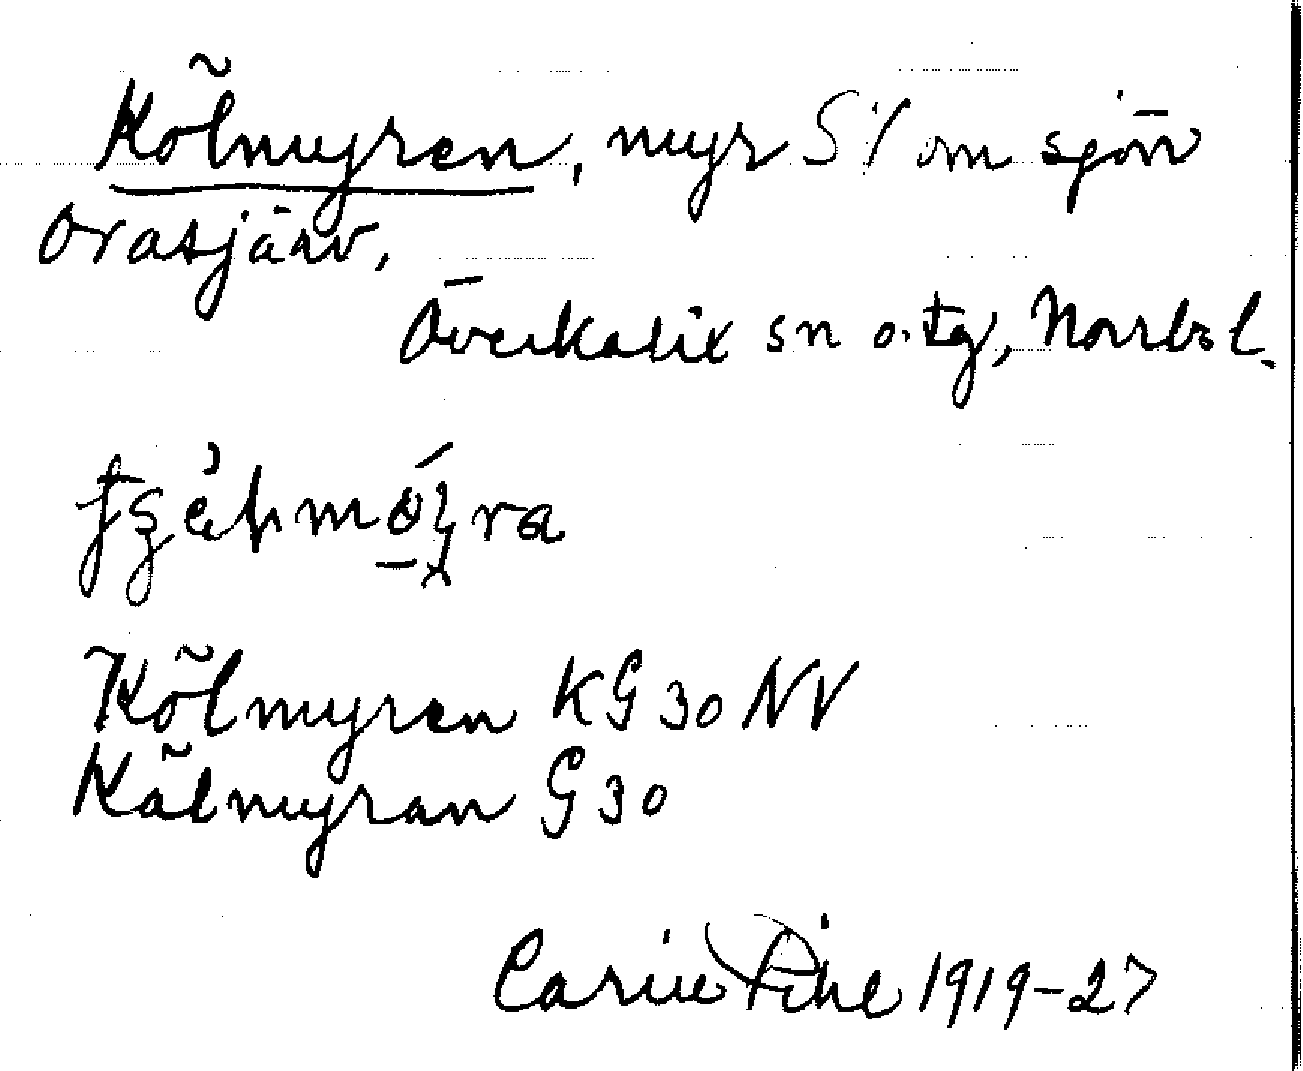 Kõlmyren, myr S% om sjön
Orasjärv,
Överkalix sn o. tg, Norrb. l.
Kõlmyren KG 30 NV
Kãlmyran G 30
Carin Pihl 1919-27